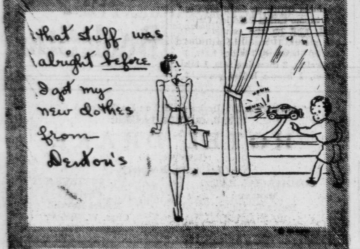 that stuff was
alright before
I got my
new clothes
from
Denton's